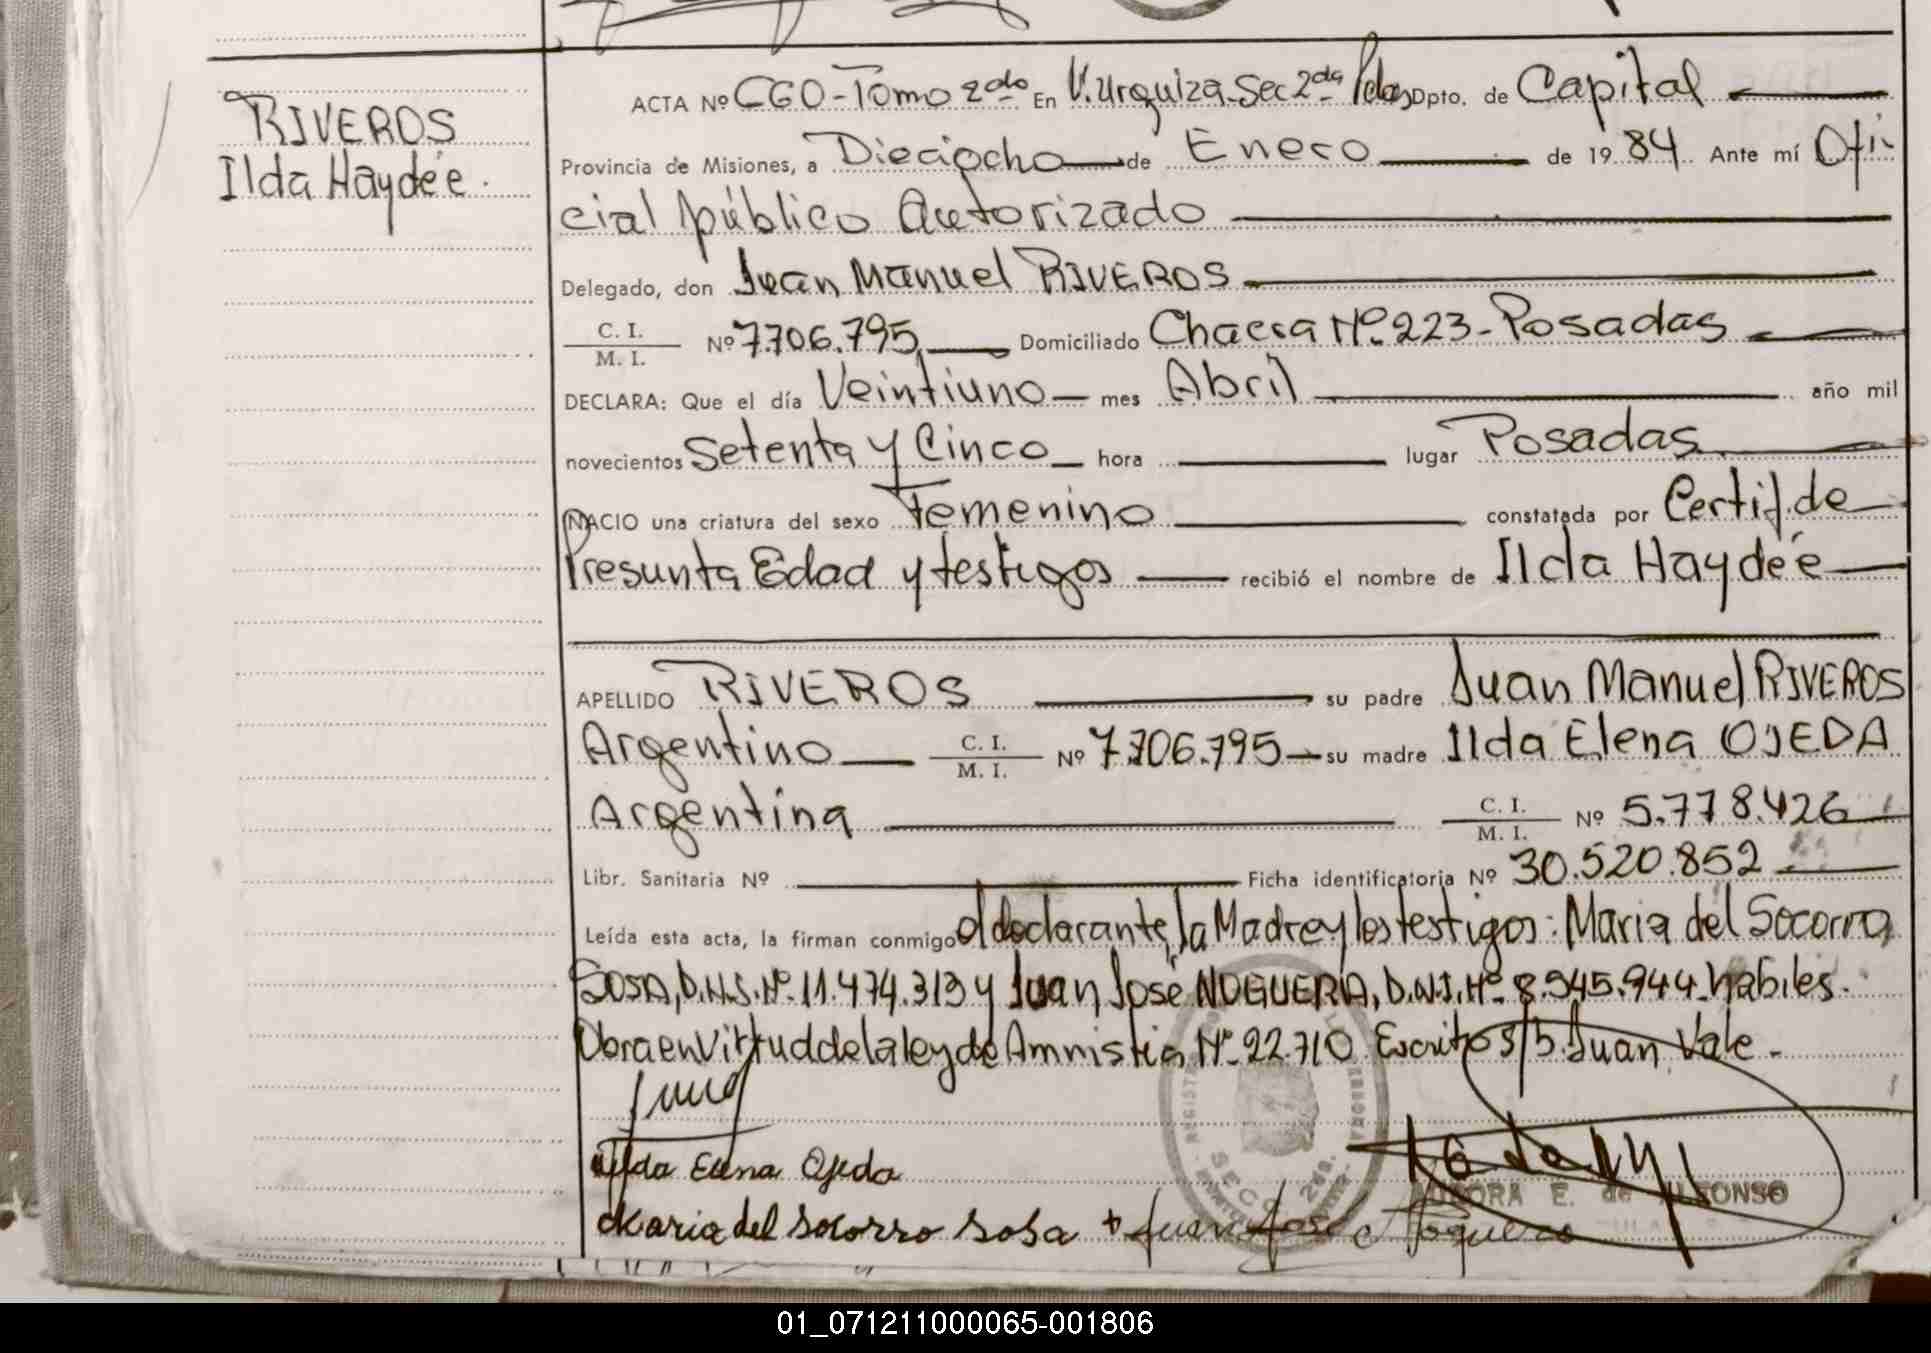 RIVEROS
Ilda Haydée.
ACTA Nº CGO-Tomo 2do En V. Urquiza-Sec 2da Pdas Dpto. de Capital
Provincia de Misiones, a Dieciocho de Enero de 1984 Ante mí Ofi-
cial público Autorizado
Delegado, don Juan Manuel RIVEROS
C. I.
M. I. Nº 7.706.795 Domiciliado Chacra Nº 223-Posadas
DECLARA: Que el día Veintiuno mes Abril año mil
novecientos Setenta y Cinco hora lugar Posadas
NACIO una criatura del sexo Femenino constatada por Certif. de
Presunta Edad y testigos recibió el nombre de Ilda Haydée
APELLIDO RIVEROS su padre Juan Manuel RIVEROS
Argentino C. I. M. I. Nº 7.706.795 su madre Ilda Elena OJEDA
Argentina C. I. M. I. Nº 5.778.426
Libr. Sanitaria Nº Ficha identificatoria Nº 30.520.852
Leída esta acta, la firman conmigo el declarante, la Madre y los testigos: Maria del Socorro
SOSA, D.N.I. Nº 11.474.313 y Juan José NOGUERA, D.N.I. Nº 8.545.944 habiles.
Obra en Virtud de la ley de Amnistia Nº 22.710 Escrito s/b Juan Vale.
Ilda Elena Ojeda
AURORA E. de ALFONSO
Maria del Socorro Sosa + Juan José Noguera
01_071211000065-001806